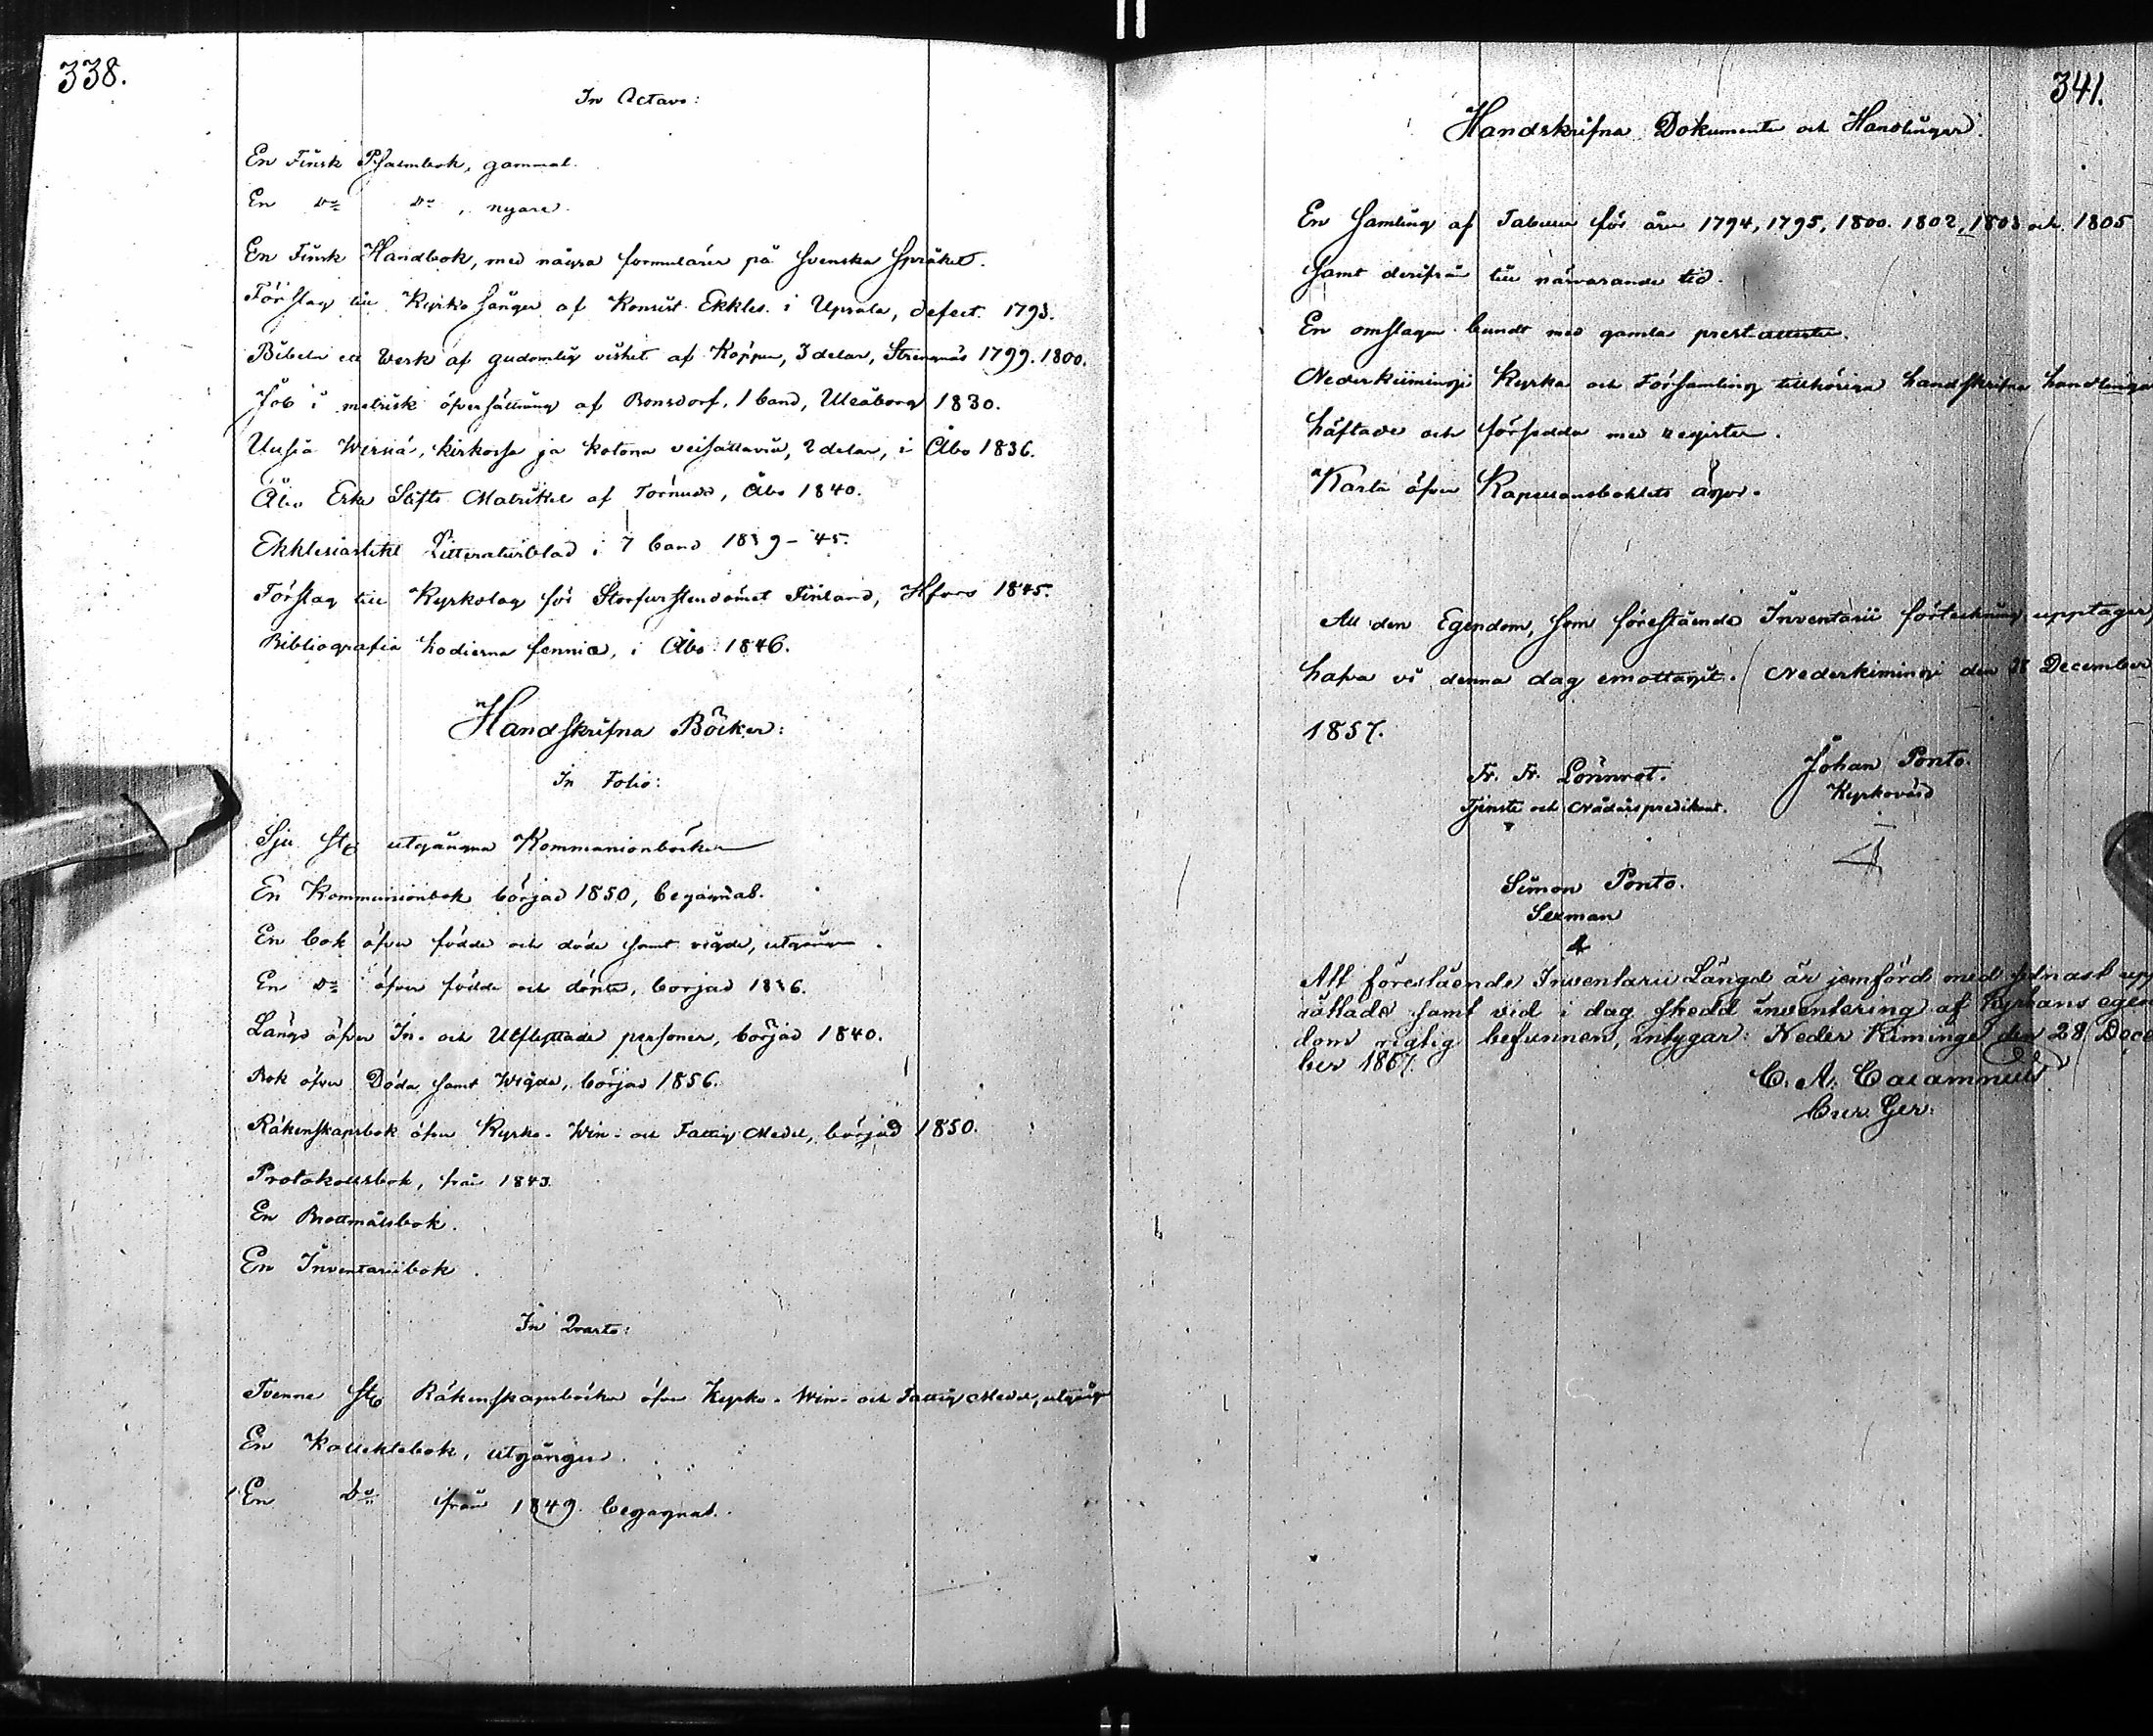 338.
In Octavo:
En Finsk Psalmbok, gammal.
En Do Do, nyare.
En Finsk Handbok, med några formulärer på Svenska Språket.
Förslag till Kyrko sånger af Konsist. Ekkles. i Upsala, defect. 1793.
Bibeln ett Werk af gudomlig vishet af Köppen, 3 delar, Strengnäs 1799. 1800.
Job i metrisk öfversättning af Bonsdorf, 1 band, Uleåborg 1830.
Uusia Wirsiä, kirkossa ja kotona veisattavia, 2 delar, i Åbo 1836.
Åbo Erke Stifts Matrikel af Törnudd, Åbo 1840.
Ekklesiastikt Litteraturblad i 7 band 1839-45.
Förslag till Kyrkolag för Storfurstendömet Finland, Hfors 1845.
Bibliografia hodierna fennica, i Åbo 1846.
Handskrifna Böcker:
In Folio:
Sju st utgångna Kommunionböcker
En Kommunionbok börjad 1850, begagnas.
En bok öfver födde och döde samt vigde, utgången.
En Do öfver födde och döpte, börjad 1836.
Längd öfver In- och Utflyttade personer, börjad 1840.
Bok öfver Döda samt Wigda, börjad 1856.
Räkenskapsbok öfver Kyrko- Win- och Fattig Medel, börjad 1850.
Protokollsbok, från 1843.
En Brottmålsbok.
En Inventariibok.
In Qvarto:
Tvenne st Räkenskapsböcker öfver Kyrko- Win- och Fattig Medel, utgångna
En Kollektebok, utgången.
En Do från 1849. begagnas.
341.
Handskrifna Dokumenter och Handlingar.
En Samling af Tabeller för åren 1794, 1795, 1800. 1802, 1803 och 1805
samt derifrån till närvarande tid.
En omslagen bundt med gamla prestattester.
Nederkiimingi Kyrka och Församling tillhöriga handskrifna handlingar
häftade och försedda med register.
Karta öfver Kapellansbohlets ägor.
All den Egendom, som förestående Inventarii förteckning upptager,
hafva vi denna dag emottagit. Nederkimingi den 28 December
1857.
Fr. Fr. Lönnrot.
Tjenste och Nådårspredikant.
Johan Ponto.
Kyrkovärd
Simon Ponto.
Sexman
Att förestående Inventarii Längd är jemförd med sednast upp
rättade samt vid i dag skedd inventering af Kyrkans egen
dom rigtig befunnen, intygar: Neder Kiminge den 28 Decem
ber 1857.
C. A. Calamnius